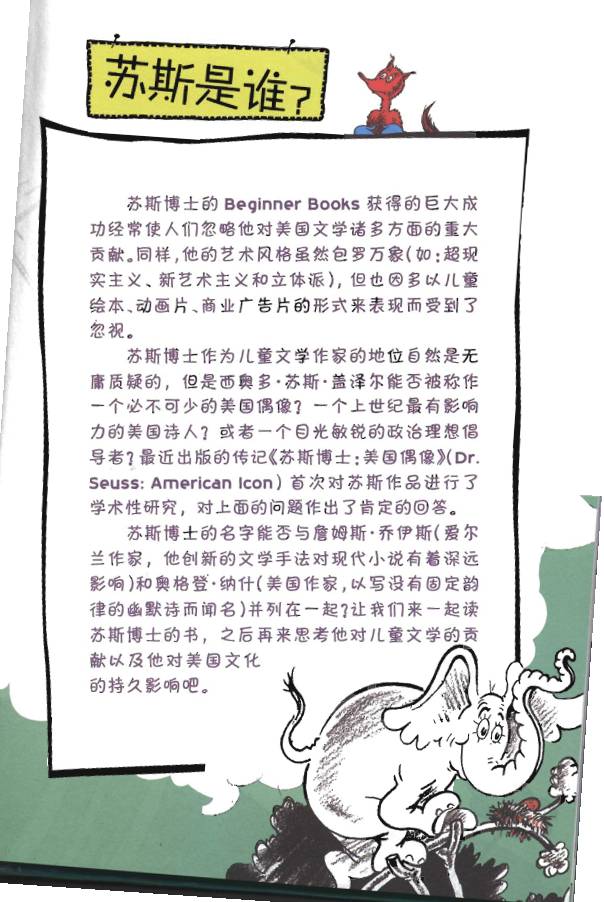 苏斯是谁?
苏斯博士的 Beginner Books 获得的巨大成
功经常使人们忽略他对美国文学诸多方面的重大
贡献。同样,他的艺术风格虽然包罗万象(如:超现
实主义、新艺术主义和立体派),但也因多以儿童
绘本、动画片、商业广告片的形式来表现而受到了
忽视。
苏斯博士作为儿童文学作家的地位自然是无
庸质疑的,但是西奥多·苏斯·盖泽尔能否被称作
一个必不可少的美国偶像?一个上世纪最有影响
力的美国诗人?或者一个目光敏锐的政治理想倡
导者?最近出版的传记《苏斯博士:美国偶像》(Dr.
Seuss: American Icon) 首次对苏斯作品进行了
学术性研究,对上面的问题作出了肯定的回答。
苏斯博士的名字能否与詹姆斯·乔伊斯(爱尔
兰作家,他创新的文学手法对现代小说有着深远
影响)和奥格登·纳什(美国作家,以写没有固定韵
律的幽默诗而闻名)并列在一起?让我们来一起读
苏斯博士的书,之后再来思考他对儿童文学的贡
献以及他对美国文化
的持久影响吧。